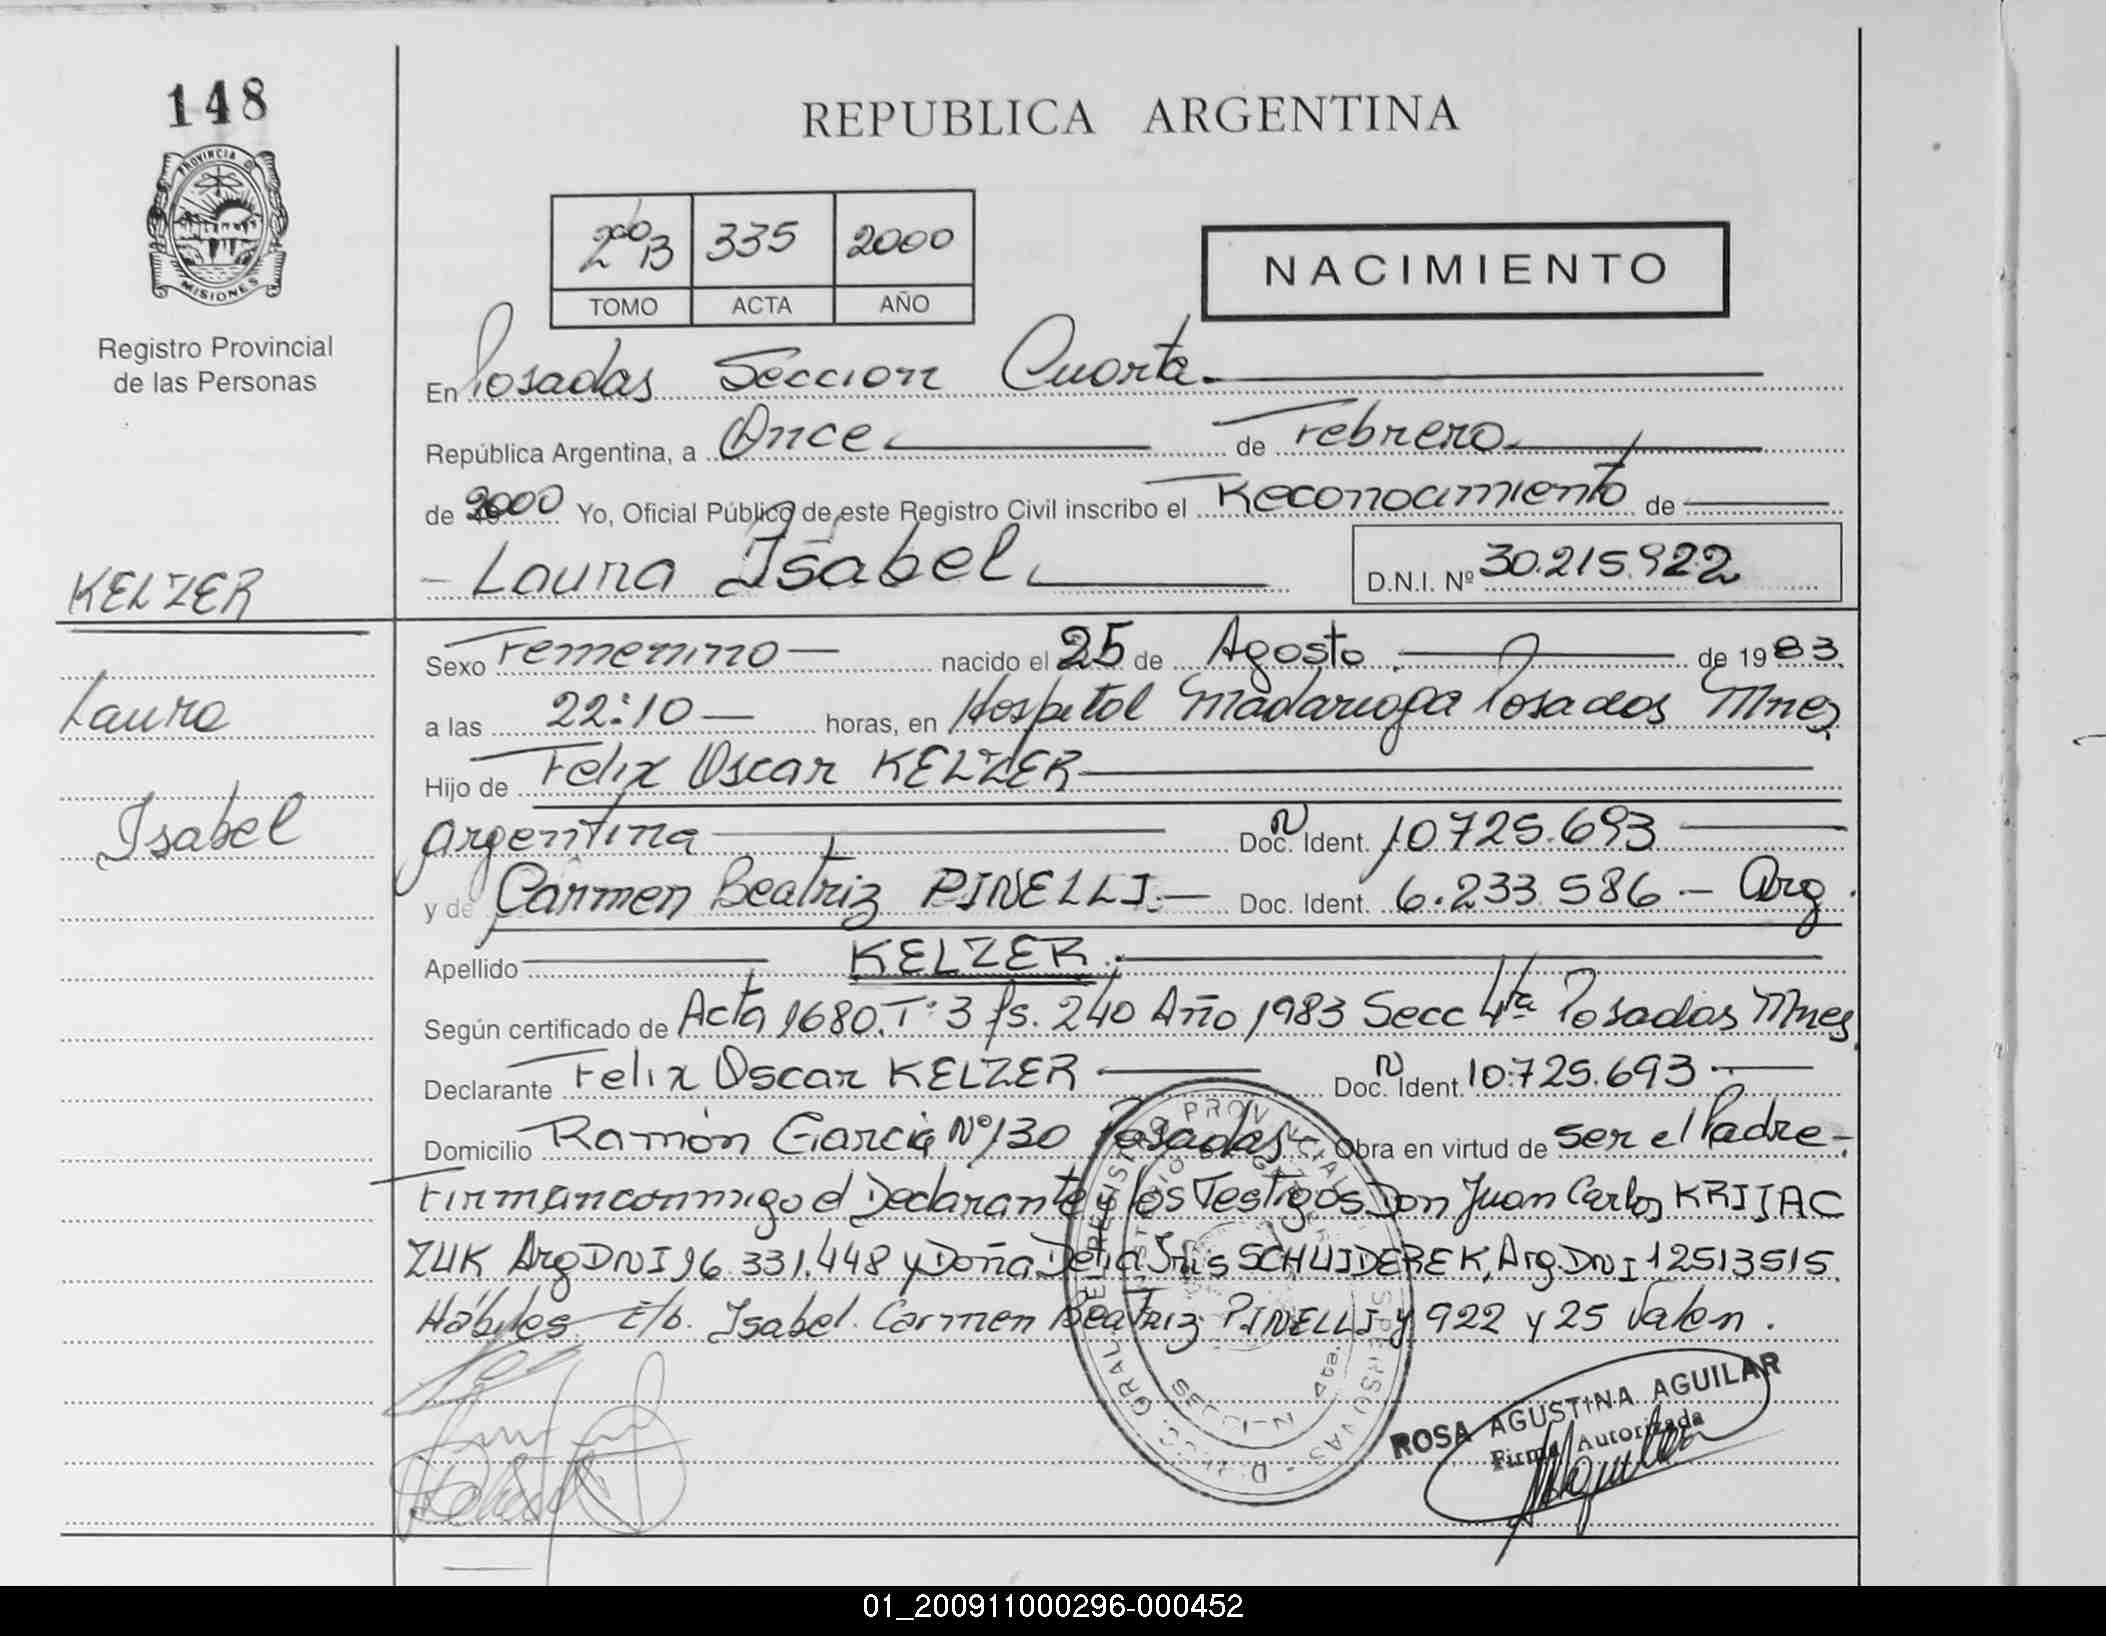 148
PROVINCIA DE
MISIONES
Registro Provincial
de las Personas
REPUBLICA ARGENTINA
2do B 335 2000
TOMO ACTA AÑO
NACIMIENTO
En Posadas Seccion Cuarta.
República Argentina, a Once de Febrero
de 2000 Yo, Oficial Público de este Registro Civil inscribo el Reconocimiento de
Laura Isabel D.N.I. Nº 30.215.922
KELZER
Laura
Isabel
Sexo Femenino nacido el 25 de Agosto de 1983
a las 22:10 horas, en Hospital Madariaga Posadas Mnes
Hijo de Felix Oscar KELZER
argentina Doc. N Ident. 10.725.693
y de Carmen Beatriz PINELLI.- Doc. Ident. 6.233.586 - Arg.
Apellido KELZER.
Según certificado de Acta 1680. Tº 3 fs. 240 Año 1983 Secc 4ta Posadas Mnes
Declarante Felix Oscar KELZER Doc. N Ident. 10.725.693
Domicilio Ramón Garcia Nº 130 Posadas Obra en virtud de ser el Padre-
Firman conmigo el Declarante y los Testigos Don Juan Carlos KRIJAC
ZUK Arg DNI 16.331.448 y Doña Delia Iris SCHUIDEREK, Arg. DNI 12513515
Hábiles. E/b. Isabel. Carmen Beatriz PINELLI y 922 y 25 Valen.
ROSA AGUSTINA AGUILAR
Firma Autorizada
01_200911000296-000452